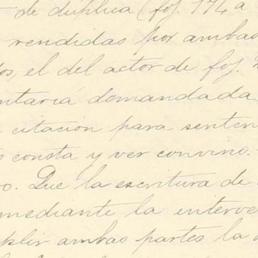 de duplica (foj. 174 a
rendidas por ambas
os, el del actor de foj.
entaria demandada
citación para senten
consta y ver convino.
o. Que la escritura de
mediante la interve
plir ambas partes la